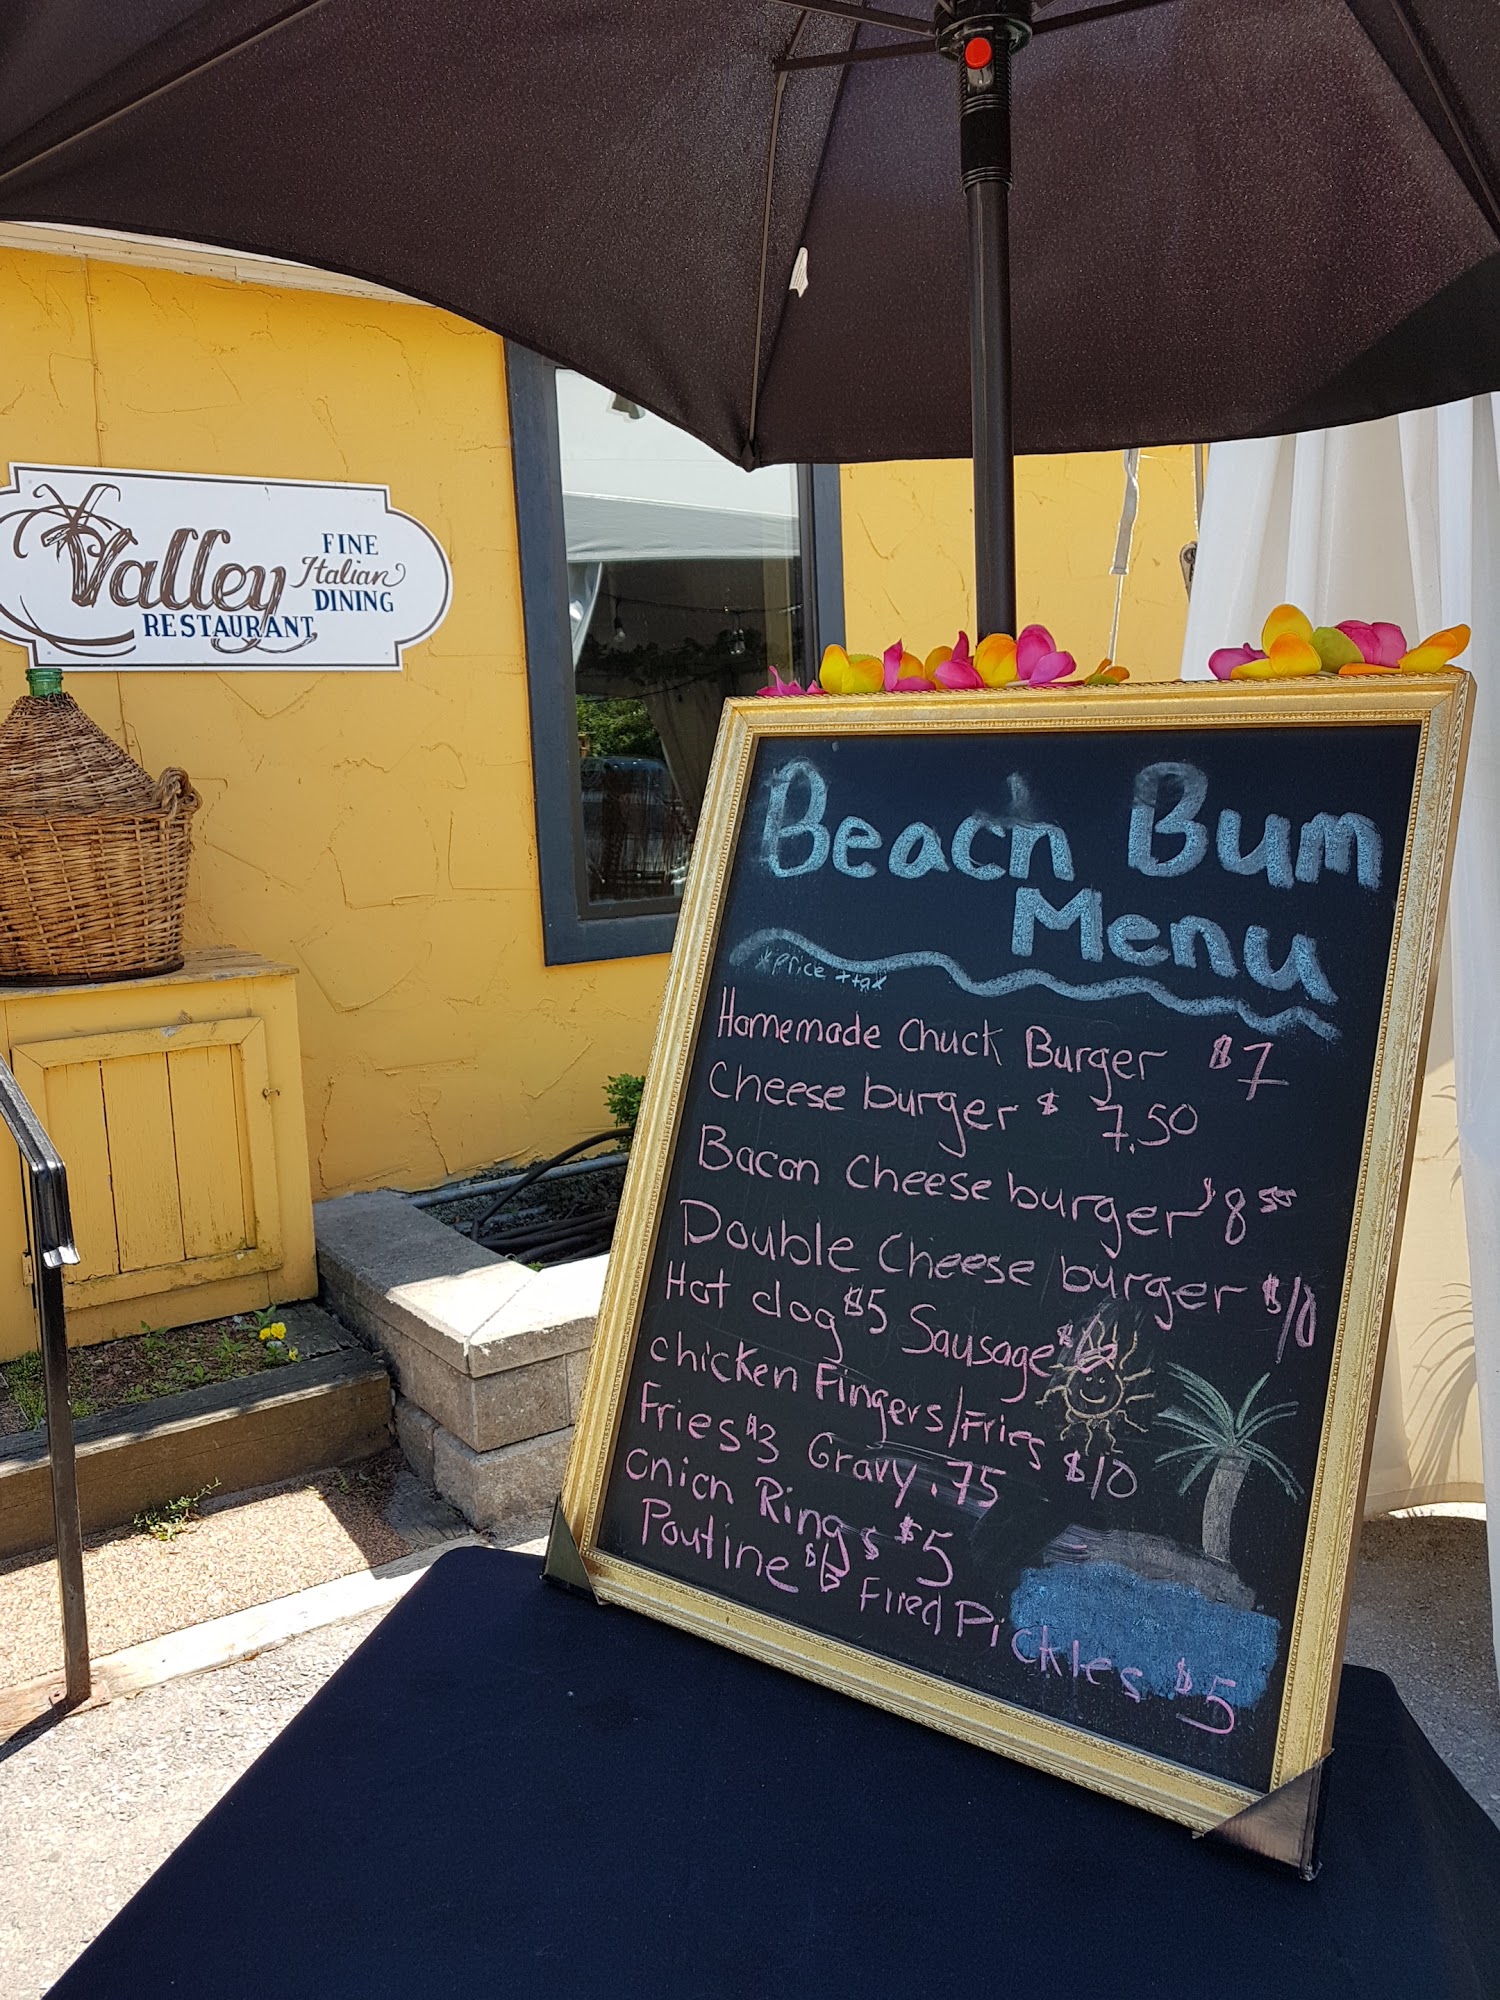 Valley
RESTAURANT
FINE
Italian
DINING
Beach Bum
Menu
*price +tax
Homemade Chuck Burger $7
Cheese burger $ 7.50
Bacon Cheese burger $8
Double Cheese burger $10
Hot dog $5 Sausage $6
chicken Fingers/Fries $10
Fries $3 Gravy .75
Onion Rings $5
Poutine $6 Fried Pickles $5